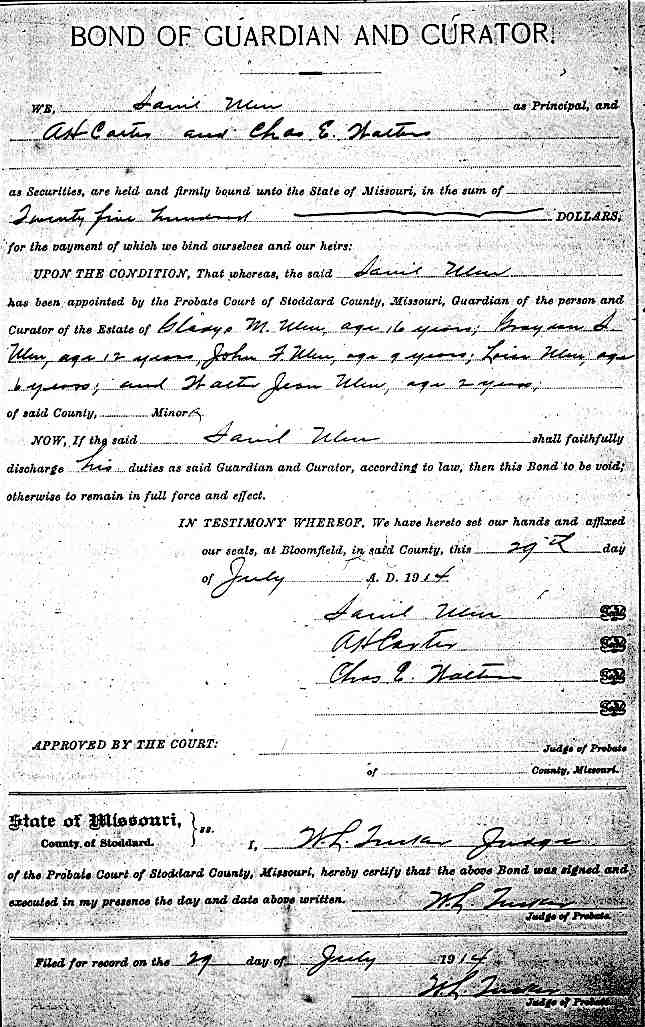 BOND OF GUARDIAN AND CURATOR.
WE, Ulen as Principal, and
AH Carter and Chas E. Walters
as Securities, are held and firmly bound unto the State of Missouri, in the sum of
Twenty five hundred DOLLARS,
for the payment of which we bind ourselves and our heirs:
UPON THE CONDITION, That whereas, the said Ulen
has been appointed by the Probate Court of Stoddard County, Missouri, Guardian of the person and
Curator of the Estate of Gladys M. Ulen, age 16 years; Grayson
Ulen, age 12 years, John F. Ulen, age 9 years; Ulen, age
6 years; and Walter Jean Ulen, age 2 years,
of said County, Minors
NOW, If the said Ulen shall faithfully
discharge his duties as said Guardian and Curator, according to law, then this Bond to be void;
otherwise to remain in full force and effect.
IN TESTIMONY WHEREOF, We have hereto set our hands and affixed
our seals, at Bloomfield, in said County, this 29th day
of July A. D. 1914.
Ulen
AH Carter
Chas E. Walters
APPROVED BY THE COURT: Judge of Probate
of County, Missouri.
State of Missouri,
County of Stoddard. } ss. I, W.L. Tucker Judge
of the Probate Court of Stoddard County, Missouri, hereby certify that the above Bond was signed and
executed in my presence the day and date above written. W.L. Tucker
Judge of Probate.
Filed for record on the 29 day of July 1914
W.L. Tucker
Judge of Probate.